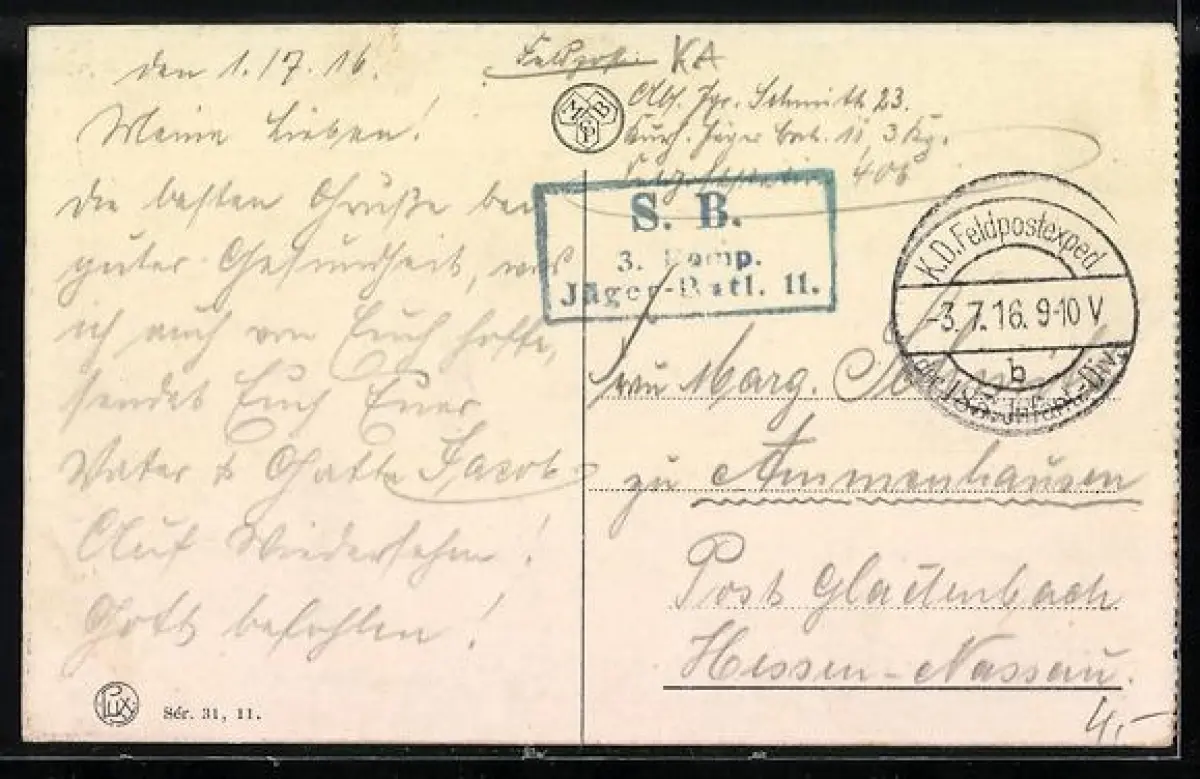 den 1./7.16.
Meine Lieben!
Die besten Grüße bei
guter Gesundheit, was
ich auch von Euch hoffe,
sendet Euch Euer
Vater & Gatte Jacob
Auf Wiedersehn!
Gott befohlen!
Lux
Sér. 31, 11.
Feldpost KA
MBP
Abs. Jgr. Schmith 23.
Kurh. Jäger Bat. 11, 3 Kp.
406
S. B.
3. Komp.
Jäger-Batl. 11.
K.D. Feldpostexped
-3.7.16. 9-10 V
b
der 185. Infant.-Div.
Marg.
zu Ammenhausen
Post Gladenbach
Hessen-Nassau.
4,-